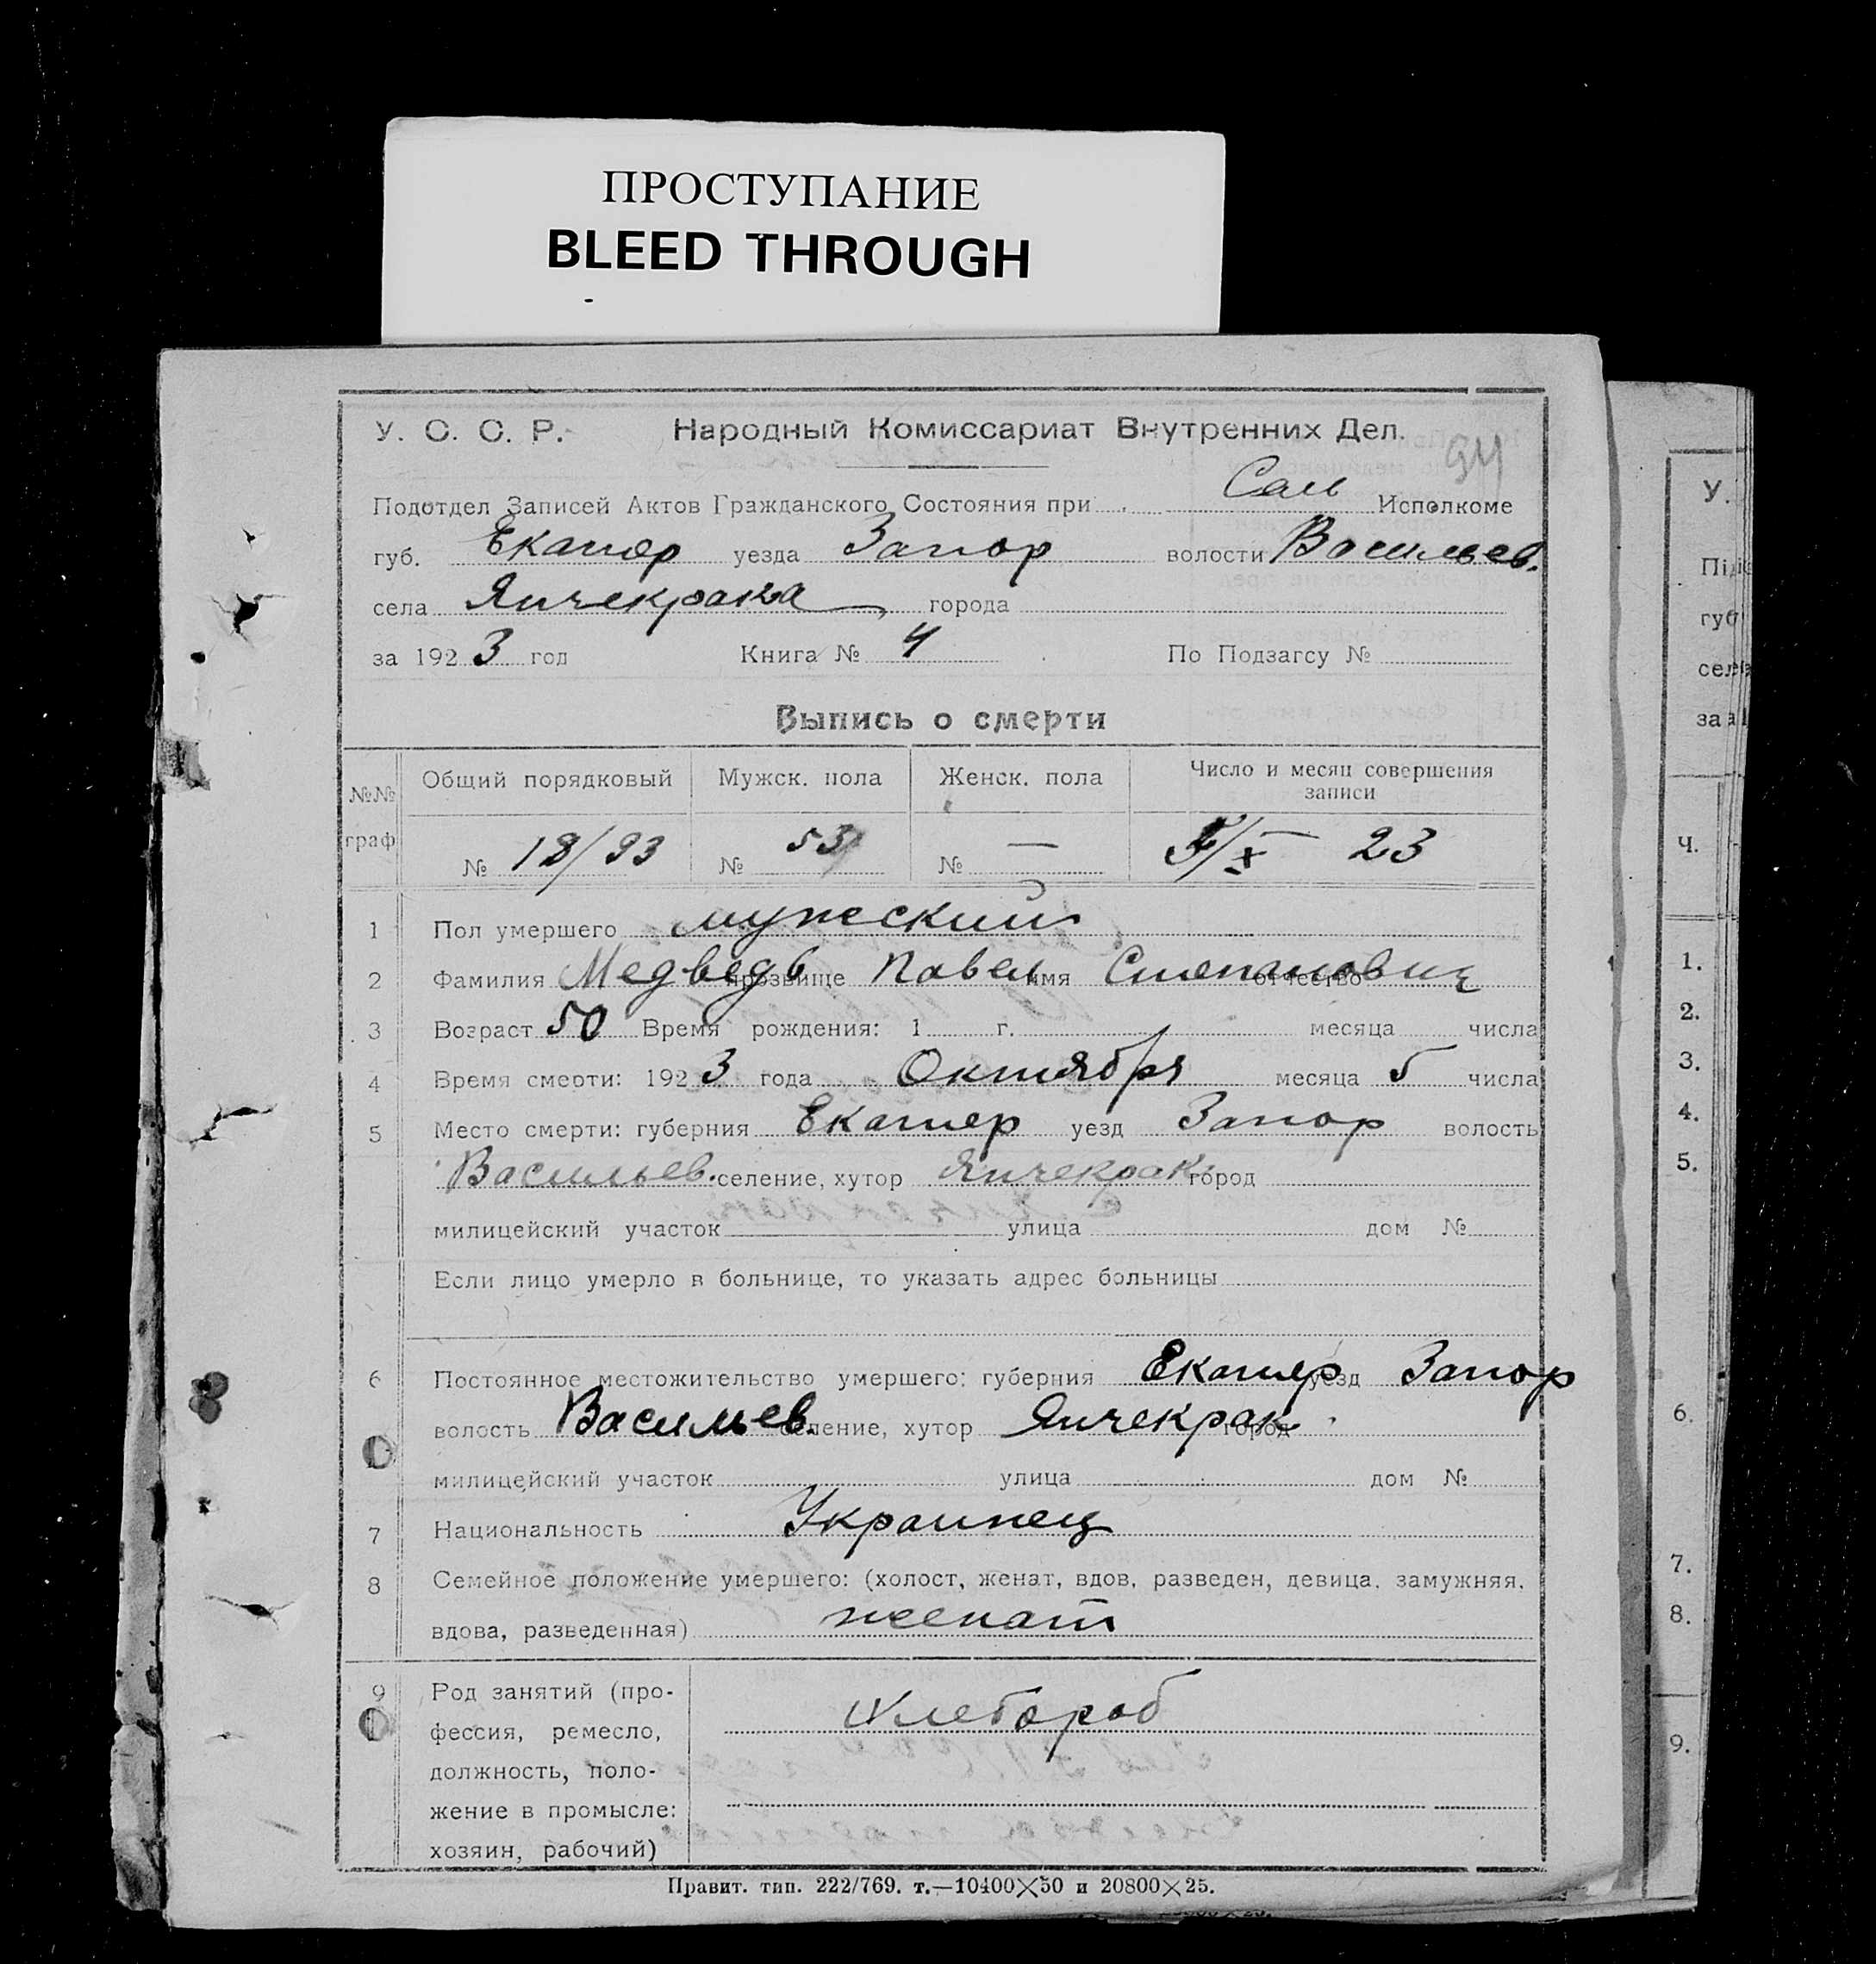 ПРОСТУПАНИЕ
BLEED THROUGH
У. С. С. Р. Народный Комиссариат Внутренних Дел.
94
Подотдел Записей Актов Гражданского Состояния при Сель Исполкоме
губ. Екатер уезда Запор волости Васильев.
села Янчекрака города
за 1923 год Книга № 4 По Подзагсу №
Выпись о смерти
№№ граф Общий порядковый Мужск. пола Женск. пола Число и месяц совершения записи
№ 18/93 № 53 № — 5/X 23
1 Пол умершего мужеский
2 Фамилия Медведь прозвище Павел имя Степанович отчество
3 Возраст 50 Время рождения: 1 г. месяца числа
4 Время смерти: 1923 года Октября месяца 5 числа
5 Место смерти: губерния Екатер уезд Запор волость
Васильев. селение, хутор Янчекрак город
милицейский участок улица дом №
Если лицо умерло в больнице, то указать адрес больницы
6 Постоянное местожительство умершего: губерния Екатер уезд Запор
волость Васильев. селение, хутор Янчекрак город
милицейский участок улица дом №
7 Национальность Украинец
8 Семейное положение умершего: (холост, женат, вдов, разведен, девица, замужняя,
вдова, разведенная) женат
9 Род занятий (про-
фессия, ремесло, хлебороб
должность, поло-
жение в промысле:
хозяин, рабочий)
Правит. тип. 222/769. т.—10400×50 и 20800×25.
У.
губ
за
Ч.
1.
2.
3.
4.
5.
6.
7.
8.
9.